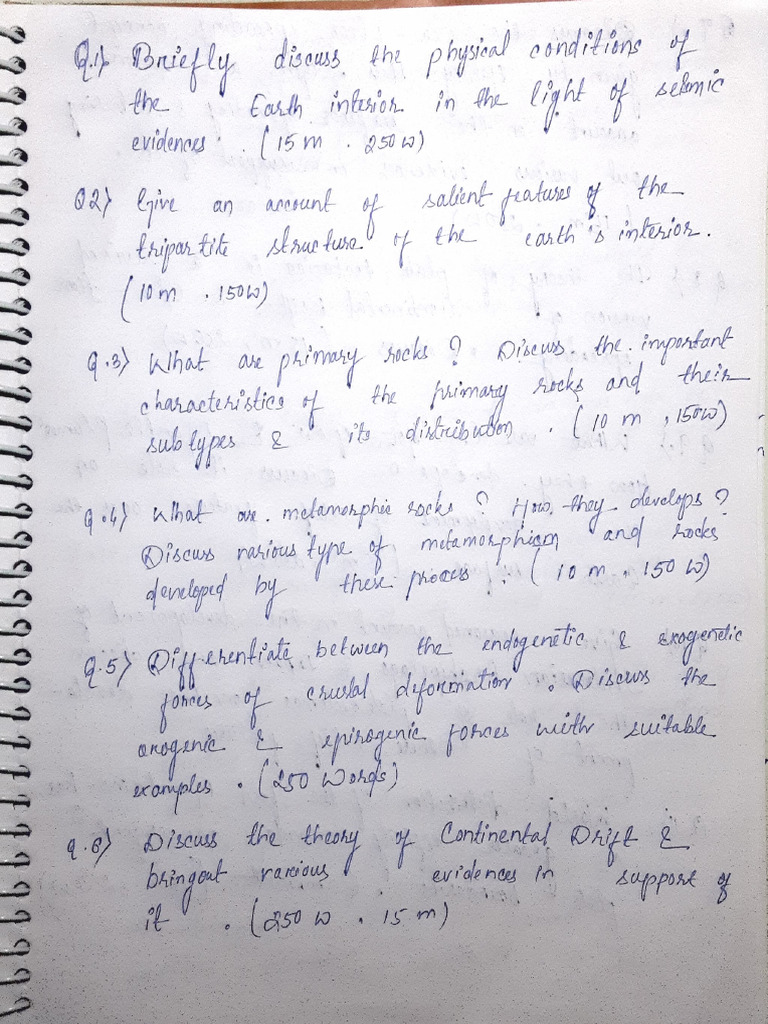 Q.1) Briefly discuss the physical conditions of
the Earth interior in the light of seismic
evidences . (15 m . 250 w)
Q2) Give an account of salient features of the
tripartite structure of the earth's interior.
(10 m . 150w)
Q.3) What are primary rocks ? Discuss the important
characteristics of the primary rocks and their
subtypes & its distribution . (10 m , 150w)
Q.4) What are metamorphic rocks ? How they develops ?
Discuss various type of metamorphism and rocks
developed by these process . (10 m . 150 w)
Q.5) Differentiate between the endogenetic & exogenetic
forces of crustal deformation . Discuss the
orogenic & epirogenic forces with suitable
examples . (250 words)
Q.6) Discuss the theory of Continental Drift &
bringout various evidences in support of
it . (250 w . 15 m)